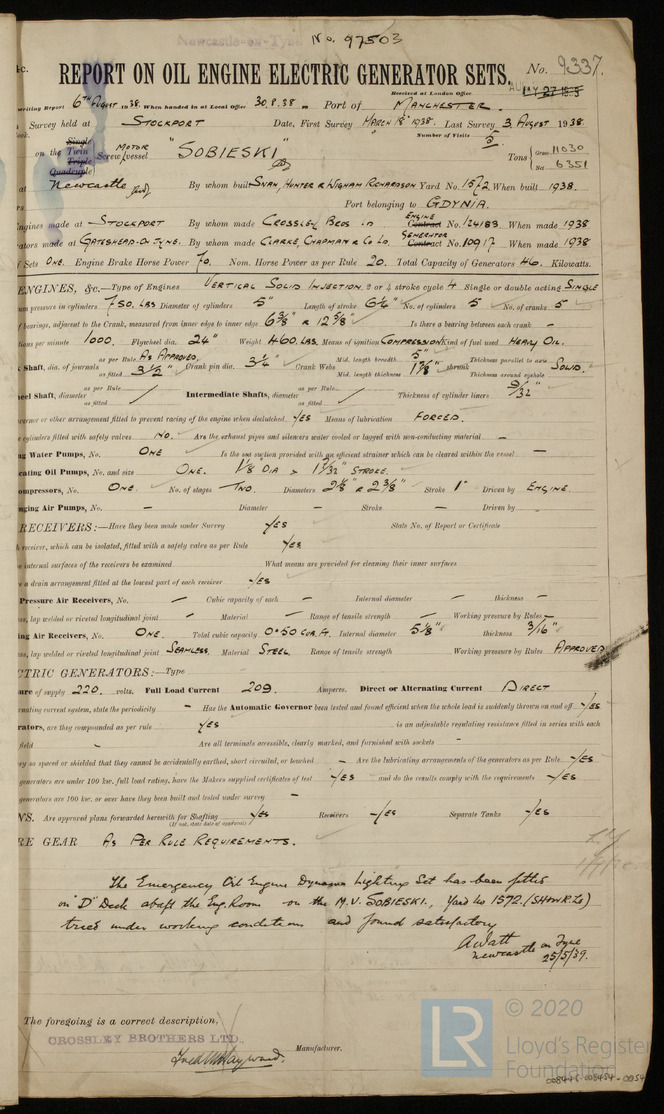 Newcastle-on-Tyne No. 97503
4c. REPORT ON OIL ENGINE ELECTRIC GENERATOR SETS. No. 9337.
Received at London Office
writing Report 6TH August 1938. When handed in at Local Office 30.8.38 Port of MANCHESTER.
Survey held at STOCKPORT Date, First Survey MARCH 18th 1938. Last Survey 3. AUGUST 1938.
Number of Visits 5
on the Single Twin Triple Quadruple Screw MOTOR vessel "SOBIESKI" Tons Gross 11030 Net 6351
at Newcastle By whom built SWAN, HUNTER & WIGHAM RICHARDSON Yard No. 1572 When built 1938.
Port belonging to GDYNIA.
Engines made at STOCKPORT By whom made CROSSLEY BROS ENGINE Contract No. 124183 When made 1938
ators made at GATESHEAD-ON-TYNE. By whom made CLARKE, CHAPMAN & Co Ld. GENERATOR Contract No. 10917 When made 1938
f Sets ONE. Engine Brake Horse Power 70. Nom. Horse Power as per Rule 20. Total Capacity of Generators 46. Kilowatts.
ENGINES, &c.—Type of Engines VERTICAL SOLID INJECTION 2 or 4 stroke cycle 4 Single or double acting SINGLE
um pressure in cylinders 750. LBS Diameter of cylinders 5" Length of stroke 6¼" No. of cylinders 5 No. of cranks 5
f bearings, adjacent to the Crank, measured from inner edge to inner edge 6⅜" & 12⅝" Is there a bearing between each crank -
tions per minute 1000. Flywheel dia. 24" Weight 460.LBS. Means of ignition COMPRESSION Kind of fuel used HEAVY OIL.
k Shaft, dia. of journals as per Rule AS APPROVED. as fitted 3½" Crank pin dia. 3¼" Crank Webs Mid. length breadth 5" Mid. length thickness 1⅞" shrunk Thickness parallel to axis Thickness around eyehole SOLID.
heel Shaft, diameter as per Rule as fitted Intermediate Shafts, diameter as per Rule as fitted Thickness of cylinder liners 9/32"
vernor or other arrangement fitted to prevent racing of the engine when declutched YES Means of lubrication FORCED.
e cylinders fitted with safety valves NO. Are the exhaust pipes and silencers water cooled or lagged with non-conducting material -
ng Water Pumps, No. ONE Is the sea suction provided with an efficient strainer which can be cleared within the vessel -
cating Oil Pumps, No. and size ONE. 1⅛" DIA × 1 5/32" STROKE.
ompressors, No. ONE. No. of stages TWO. Diameters 2⅛" & 2⅜" Stroke 1" Driven by ENGINE.
nging Air Pumps, No. - Diameter - Stroke - Driven by -
RECEIVERS:—Have they been made under Survey YES State No. of Report or Certificate
h receiver, which can be isolated, fitted with a safety valve as per Rule YES.
e internal surfaces of the receivers be examined What means are provided for cleaning their inner surfaces
e a drain arrangement fitted at the lowest part of each receiver YES
Pressure Air Receivers, No. - Cubic capacity of each - Internal diameter - thickness -
ss, lap welded or riveted longitudinal joint - Material - Range of tensile strength - Working pressure by Rules -
ing Air Receivers, No. ONE. Total cubic capacity 0·50 CUB. FT. Internal diameter 5⅛" thickness 3/16"
ss, lap welded or riveted longitudinal joint SEAMLESS. Material STEEL Range of tensile strength Working pressure by Rules APPROVED
CTRIC GENERATORS:—Type
ure of supply 220. volts. Full Load Current 209. Amperes. Direct or Alternating Current DIRECT
rnating current system, state the periodicity - Has the Automatic Governor been tested and found efficient when the whole load is suddenly thrown on and off YES
rators, are they compounded as per rule YES is an adjustable regulating resistance fitted in series with each
field - Are all terminals accessible, clearly marked, and furnished with sockets -
ey so spaced or shielded that they cannot be accidentally earthed, short circuited, or touched - Are the lubricating arrangements of the generators as per Rule YES
generators are under 100 kw. full load rating, have the Makers supplied certificates of test YES and do the results comply with the requirements YES
generators are 100 kw. or over have they been built and tested under survey -
NS. Are approved plans forwarded herewith for Shafting YES Receivers YES Separate Tanks YES
(If not, state date of approval)
RE GEAR AS PER RULE REQUIREMENTS.
The Emergency Oil Engine Dynamo Lighting Set has been fitted
on "D" Deck abaft the Eng. Room on the M.V. SOBIESKI, Yard No 1572. (SH&W.R. Ld)
tried under working conditions and found satisfactory
A Watt
Newcastle on Tyne
25/5/39.
The foregoing is a correct description,
CROSSLEY BROTHERS LTD.,
Manufacturer.
LR © 2020
Lloyd's Register
Foundation
008445-008454-0054